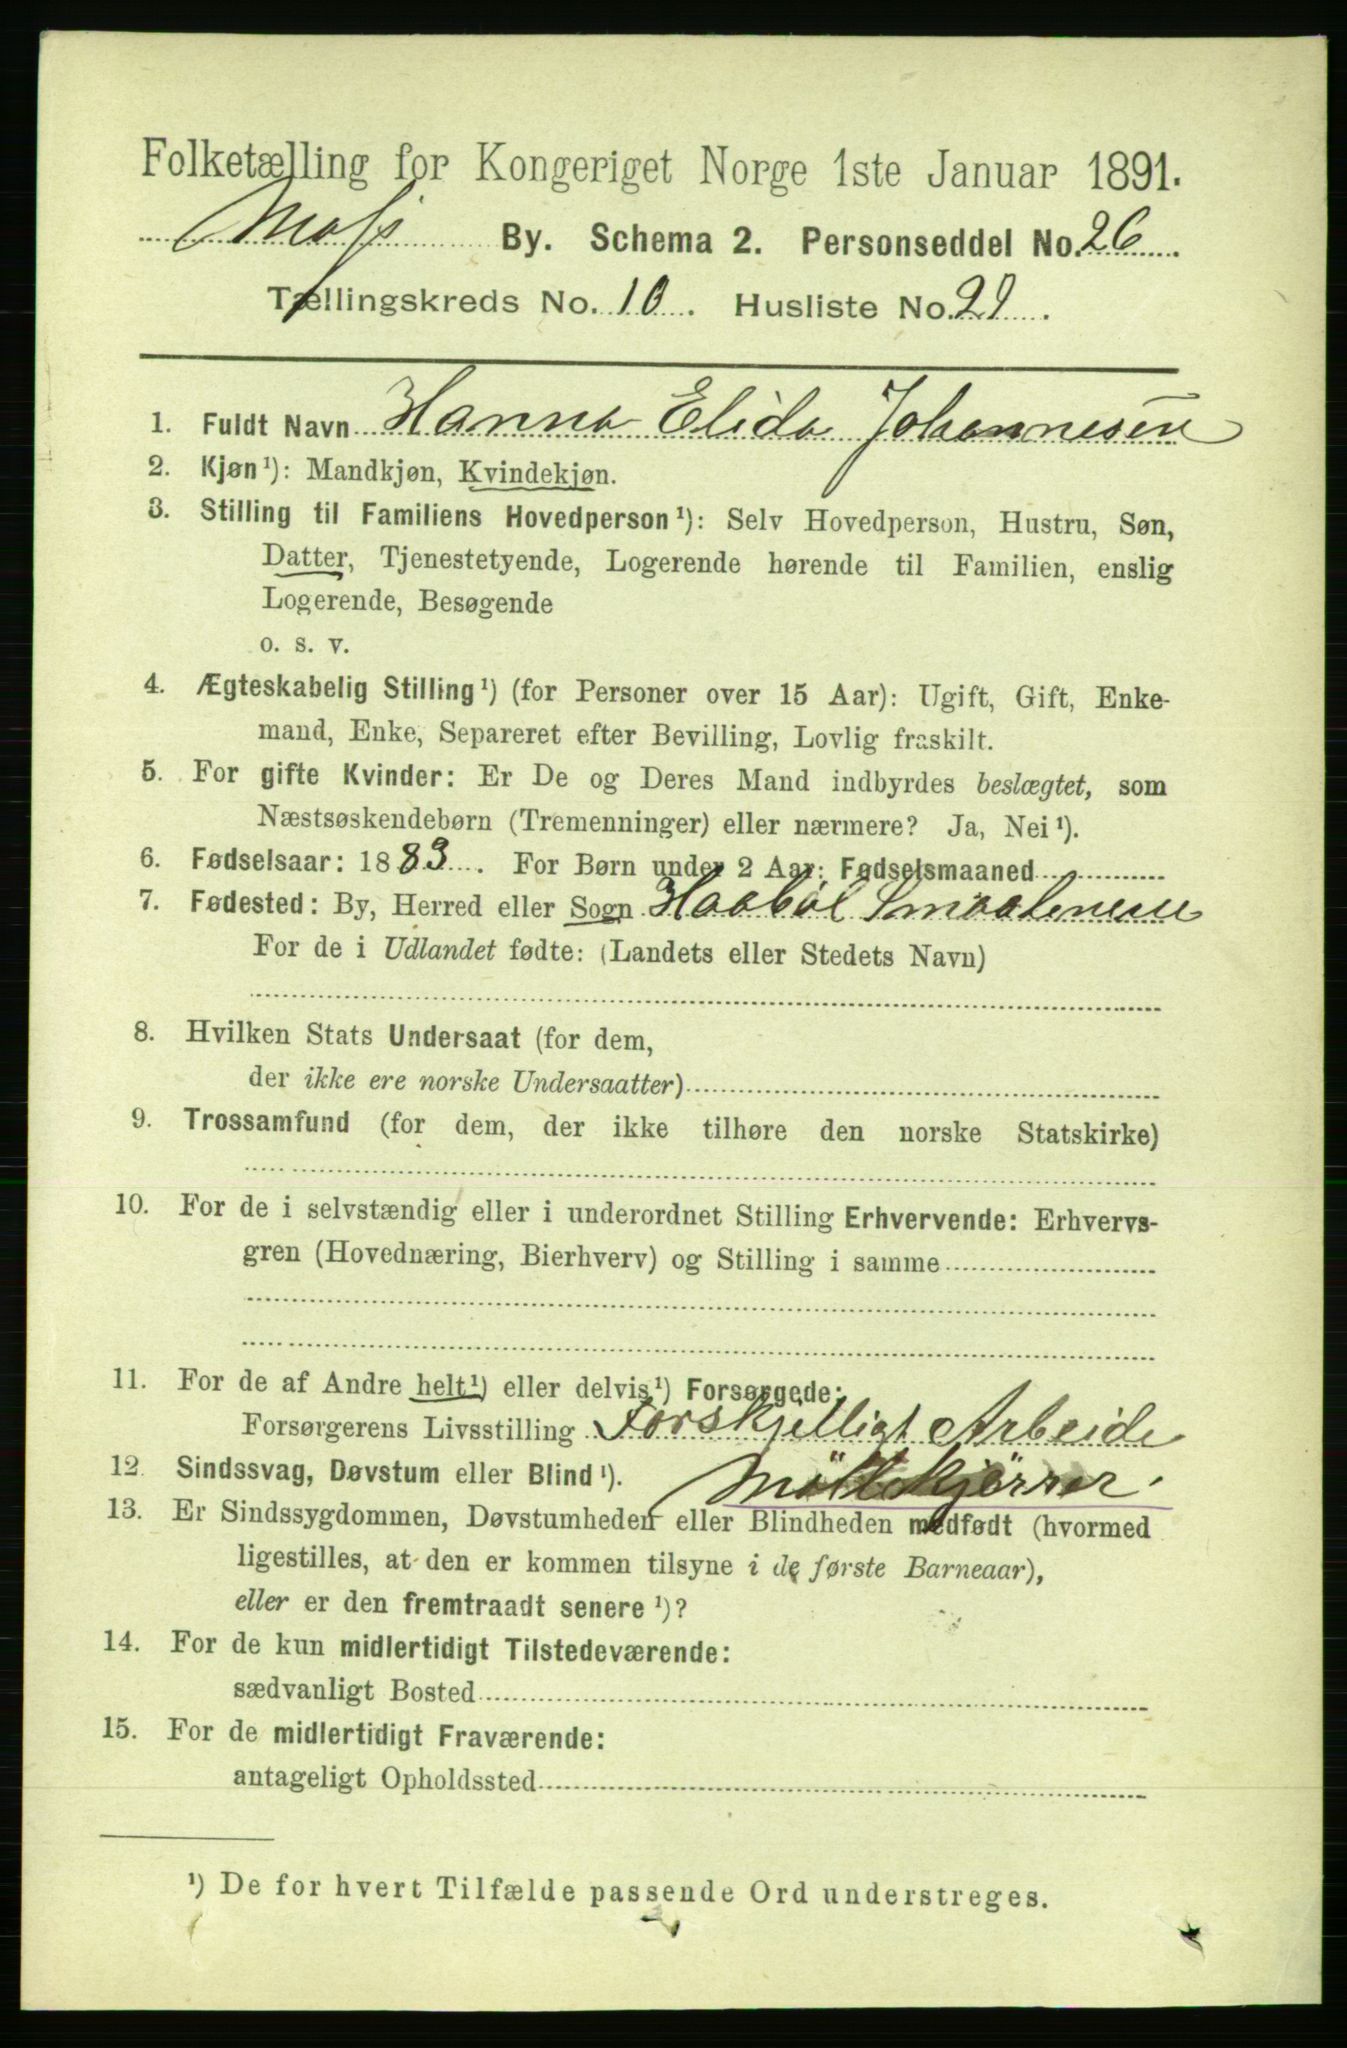 Folketælling for Kongeriget Norge 1ste Januar 1891.
Moss By. Schema 2. Personseddel No. 26
Tællingskreds No. 10. Husliste No. 29.
1. Fuldt Navn Hanna Elida Johannesen
2. Kjøn¹): Mandkjøn, Kvindekjøn.
3. Stilling til Familiens Hovedperson¹): Selv Hovedperson, Hustru, Søn,
Datter, Tjenestetyende, Logerende hørende til Familien, enslig
Logerende, Besøgende
o. s. v.
4. Ægteskabelig Stilling¹) (for Personer over 15 Aar): Ugift, Gift, Enke-
mand, Enke, Separeret efter Bevilling, Lovlig fraskilt.
5. For gifte Kvinder: Er De og Deres Mand indbyrdes beslægtet, som
Næstsøskendebørn (Tremenninger) eller nærmere? Ja, Nei¹).
6. Fødselsaar: 1883. For Børn under 2 Aar: Fødselsmaaned
7. Fødested: By, Herred eller Sogn Haabøl Smaalenene
For de i Udlandet fødte: (Landets eller Stedets Navn)
8. Hvilken Stats Undersaat (for dem,
der ikke ere norske Undersaatter)
9. Trossamfund (for dem, der ikke tilhøre den norske Statskirke)
10. For de i selvstændig eller i underordnet Stilling Erhvervende: Erhvervs-
gren (Hovednæring, Bierhverv) og Stilling i samme
11. For de af Andre helt¹) eller delvis¹) Forsørgede:
Forsørgerens Livsstilling Forskjelligt Arbeide
12. Sindssvag, Døvstum eller Blind¹). Möllekjörrer.
13. Er Sindssygdommen, Døvstumheden eller Blindheden medfødt (hvormed
ligestilles, at den er kommen tilsyne i de første Barneaar),
eller er den fremtraadt senere¹)?
14. For de kun midlertidigt Tilstedeværende:
sædvanligt Bosted
15. For de midlertidigt Fraværende:
antageligt Opholdssted
¹) De for hvert Tilfælde passende Ord understreges.